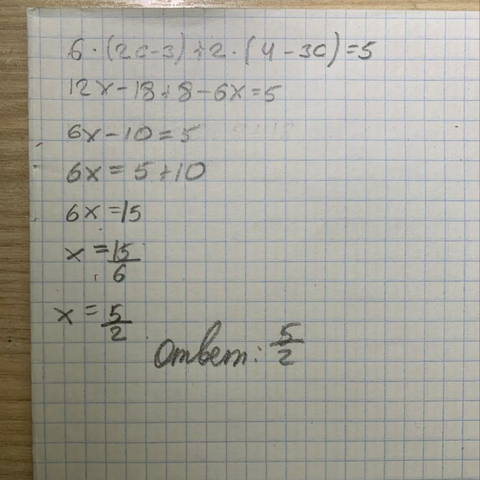 6 · (2c-3) + 2 · (4 - 3c) = 5
12x - 18 + 8 - 6x = 5
6x - 10 = 5
6x = 5 + 10
6x = 15
x = 15/6
x = 5/2
Ответ: 5/2